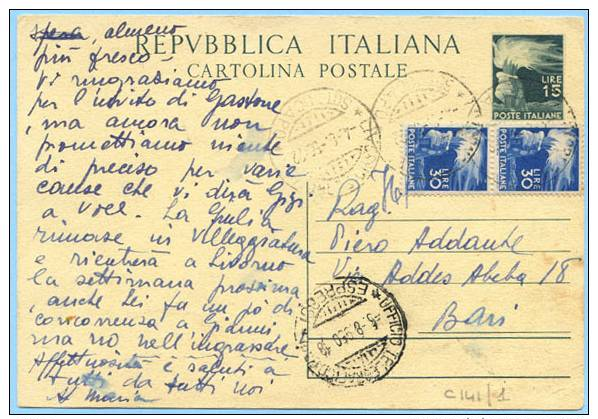 spera, almeno
più fresco -
Vi ringraziamo
per l'invito di Gastone
, ma ancora non
promettiamo niente
di preciso per varie
cause che vi dirà Gigi
a voce. La Giulia
rimase in villeggiatura
e rientrerà a Livorno
la settimana prossima
, anche lei fa un po' di
concorrenza a Gianni
ma no nell'ingrassare.
Affettuosità e saluti a
tutti da tutti noi
Maria
REPVBBLICA ITALIANA
CARTOLINA POSTALE
LIRE
15
POSTE ITALIANE
POSTE ITALIANE
LIRE
30
POSTE ITALIANE
LIRE
30
Rag.
Piero Addante
Via Addes Abeba 18
Bari
UFFICIO
ESPRESSI
C141/1